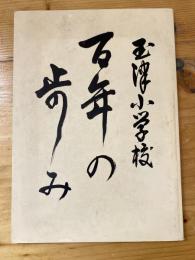 玉津小学校
百年の
歩み